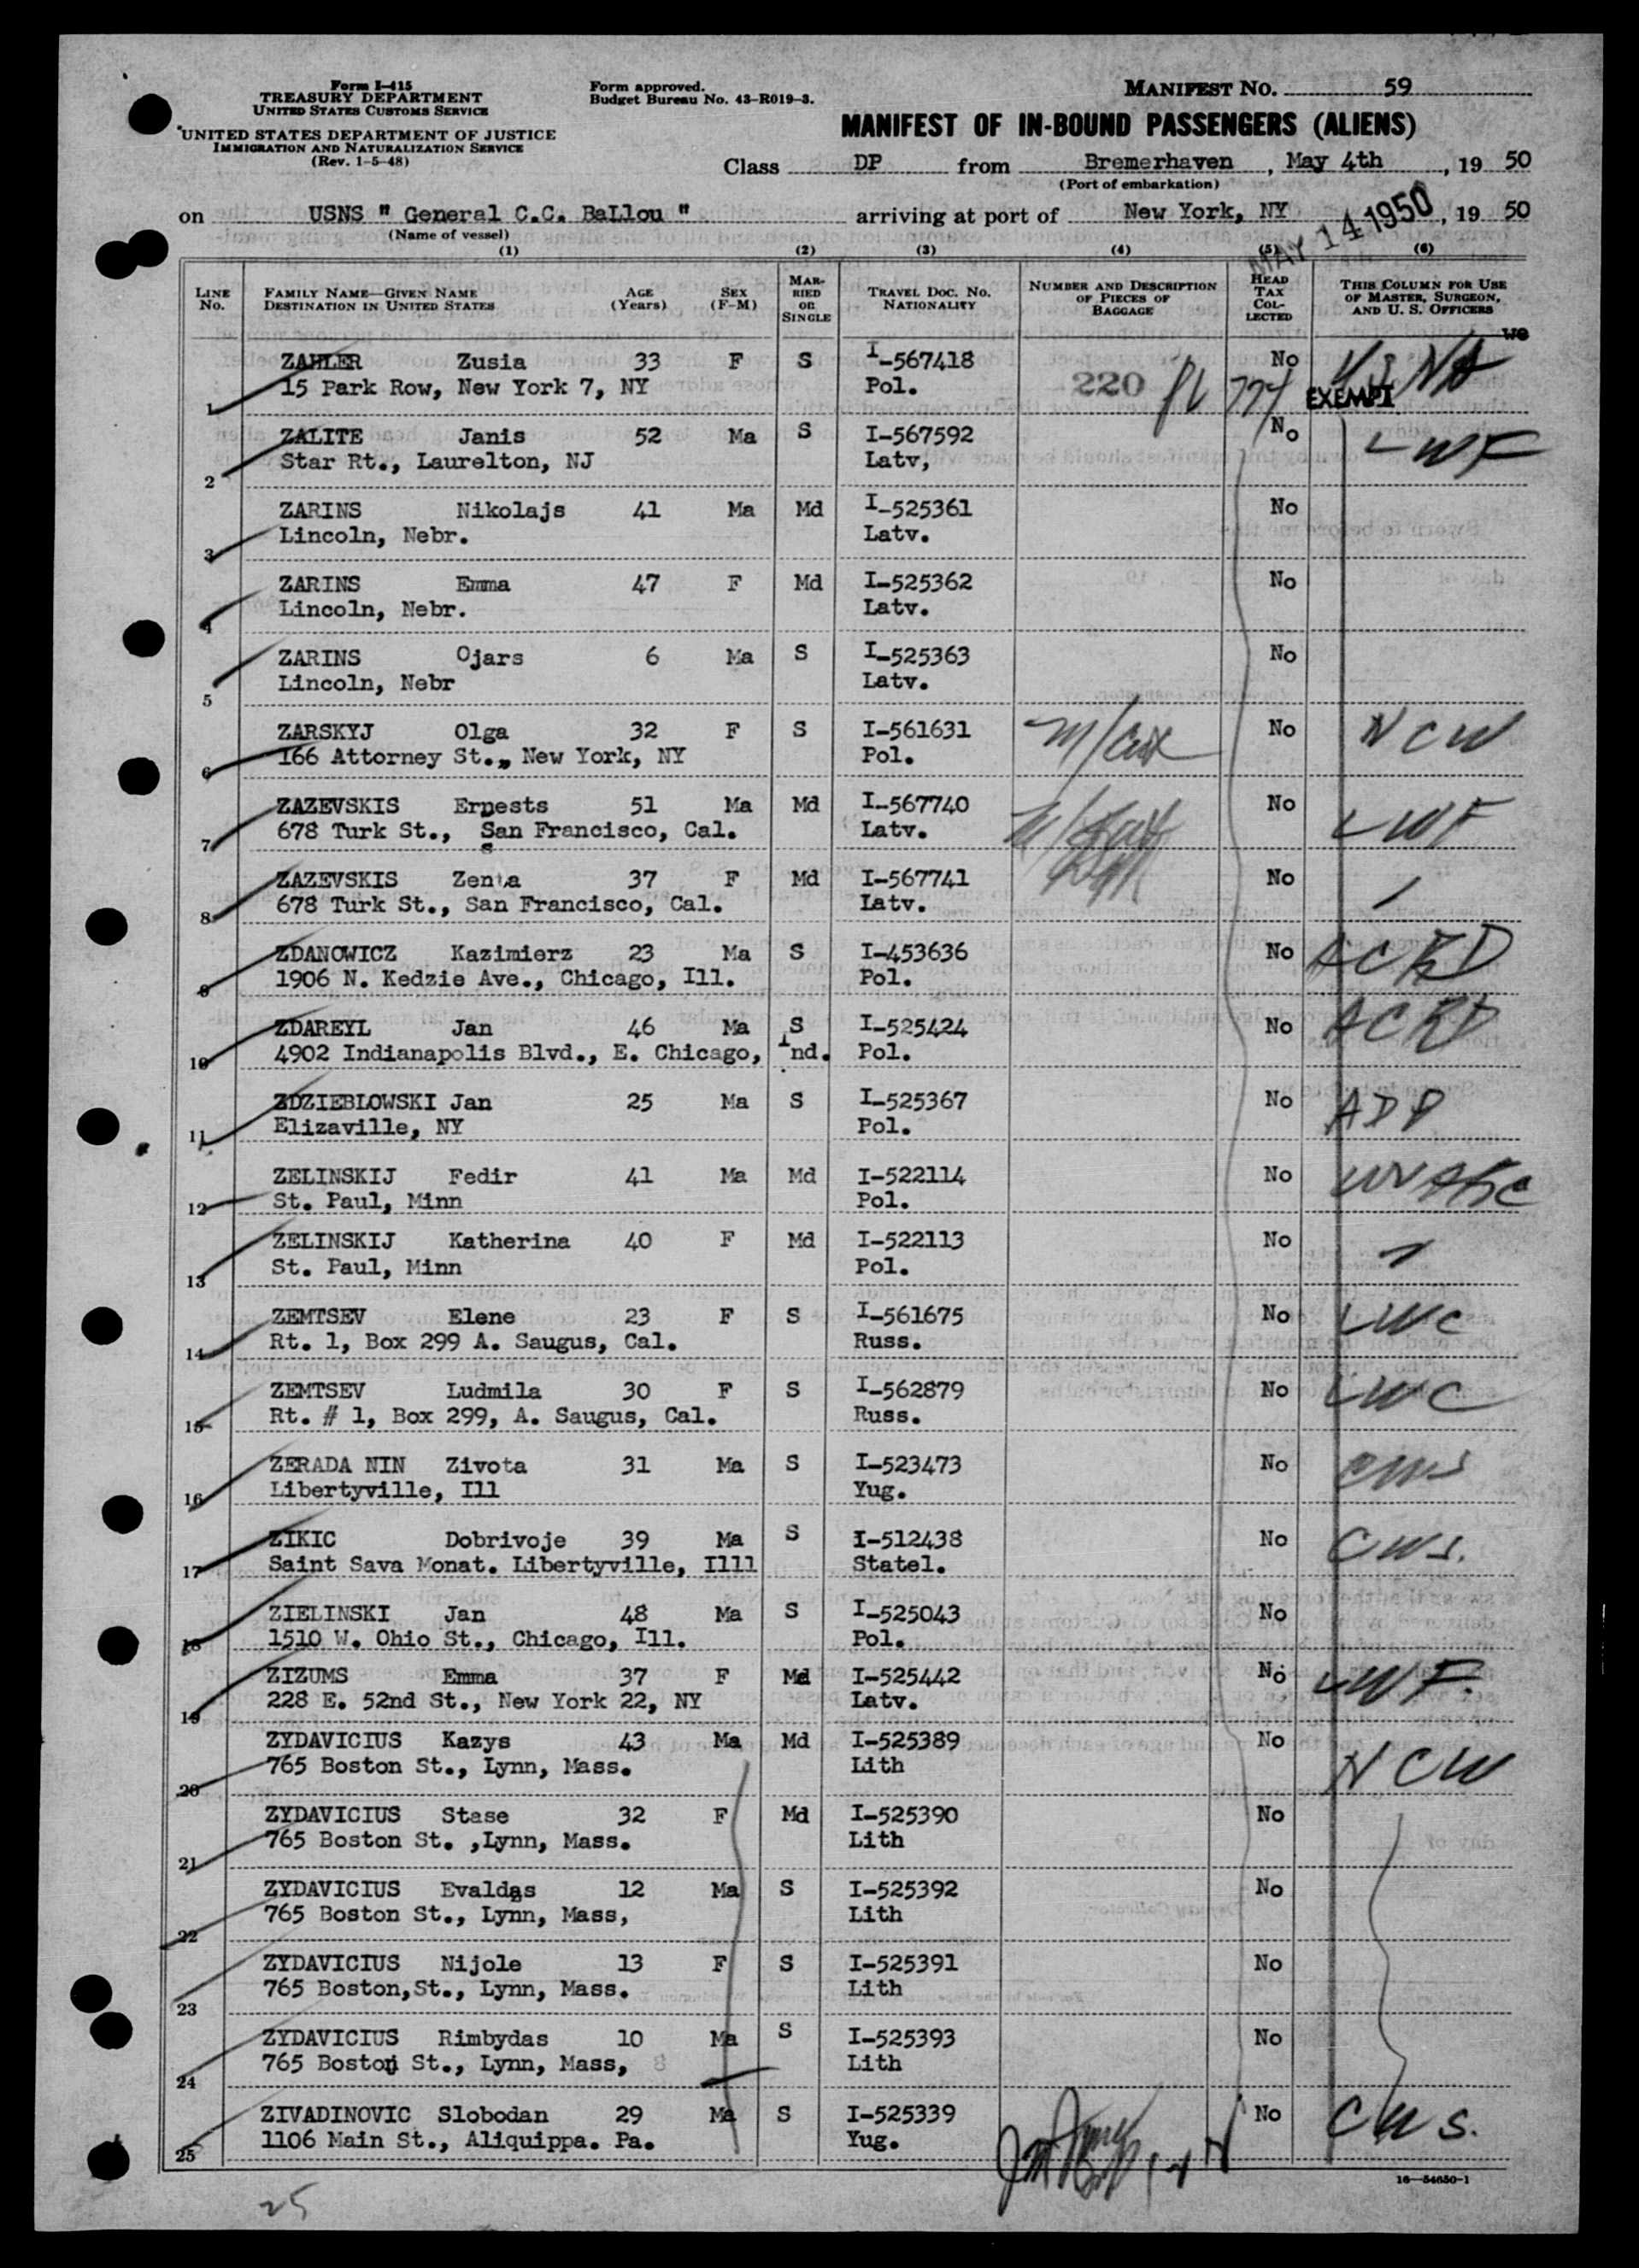 Form I-415
TREASURY DEPARTMENT
UNITED STATES CUSTOMS SERVICE
UNITED STATES DEPARTMENT OF JUSTICE
IMMIGRATION AND NATURALIZATION SERVICE
(Rev. 1-5-48)
Form approved.
Budget Bureau No. 43-R019-3.
MANIFEST NO. 59
MANIFEST OF IN-BOUND PASSENGERS (ALIENS)
Class DP from Bremerhaven, May 4th, 19 50
(Port of embarkation)
on USNS " General C.C. BaLlou " arriving at port of New York, NY MAY 14 1950, 19 50
(Name of vessel)
(1) (2) (3) (4) (5) (6)
LINE No. FAMILY NAME—GIVEN NAME DESTINATION IN UNITED STATES AGE (Years) SEX (F-M) MARRIED OR SINGLE TRAVEL DOC. NO. NATIONALITY NUMBER AND DESCRIPTION OF PIECES OF BAGGAGE HEAD TAX COLLECTED THIS COLUMN FOR USE OF MASTER, SURGEON, AND U. S. OFFICERS
ZAHLER Zusia 33 F S I-567418 No
1 15 Park Row, New York 7, NY Pol. 220 EXEMPT
ZALITE Janis 52 Ma S I-567592 No LWF
2 Star Rt., Laurelton, NJ Latv,
ZARINS Nikolajs 41 Ma Md I-525361 No
3 Lincoln, Nebr. Latv.
ZARINS Emma 47 F Md I-525362 No
4 Lincoln, Nebr. Latv.
ZARINS Ojars 6 Ma S I-525363 No
5 Lincoln, Nebr Latv.
ZARSKYJ Olga 32 F S I-561631 No NCW
6 166 Attorney St., New York, NY Pol.
ZAZEVSKIS Ernests 51 Ma Md I-567740 No LWF
7 678 Turk St., San Francisco, Cal. Latv.
ZAZEVSKIS Zenta 37 F Md I-567741 No
8 678 Turk St., San Francisco, Cal. Latv.
ZDANOWICZ Kazimierz 23 Ma S I-453636 No ACRD
9 1906 N. Kedzie Ave., Chicago, Ill. Pol.
ZDAREYL Jan 46 Ma S I-525424 No ACRD
10 4902 Indianapolis Blvd., E. Chicago, Ind. Pol.
ZDZIEBLOWSKI Jan 25 Ma S I-525367 No ADP
11 Elizaville, NY Pol.
ZELINSKIJ Fedir 41 Ma Md I-522114 No
12 St. Paul, Minn Pol.
ZELINSKIJ Katherina 40 F Md I-522113 No
13 St. Paul, Minn Pol.
ZEMTSEV Elene 23 F S I-561675 No LWC
14 Rt. 1, Box 299 A. Saugus, Cal. Russ.
ZEMTSEV Ludmila 30 F S I-562879 No LWC
15 Rt. # 1, Box 299, A. Saugus, Cal. Russ.
ZERADA NIN Zivota 31 Ma S I-523473 No CWS
16 Libertyville, Ill Yug.
ZIKIC Dobrivoje 39 Ma S I-512438 No CWS.
17 Saint Sava Monat. Libertyville, Illl Statel.
ZIELINSKI Jan 48 Ma S I-525043 No
18 1510 W. Ohio St., Chicago, Ill. Pol.
ZIZUMS Emma 37 F Md I-525442 No LWF.
19 228 E. 52nd St., New York 22, NY Latv.
ZYDAVICIUS Kazys 43 Ma Md I-525389 No NCW
20 765 Boston St., Lynn, Mass. Lith
ZYDAVICIUS Stase 32 F Md I-525390 No
21 765 Boston St. ,Lynn, Mass. Lith
ZYDAVICIUS Evaldas 12 Ma S I-525392 No
22 765 Boston St., Lynn, Mass, Lith
ZYDAVICIUS Nijole 13 F S I-525391 No
23 765 Boston,St., Lynn, Mass. Lith
ZYDAVICIUS Rimbydas 10 Ma S I-525393 No
24 765 Boston St., Lynn, Mass, Lith
ZIVADINOVIC Slobodan 29 Ma S I-525339 No CWS.
25 1106 Main St., Aliquippa. Pa. Yug.
16—54650-1
25